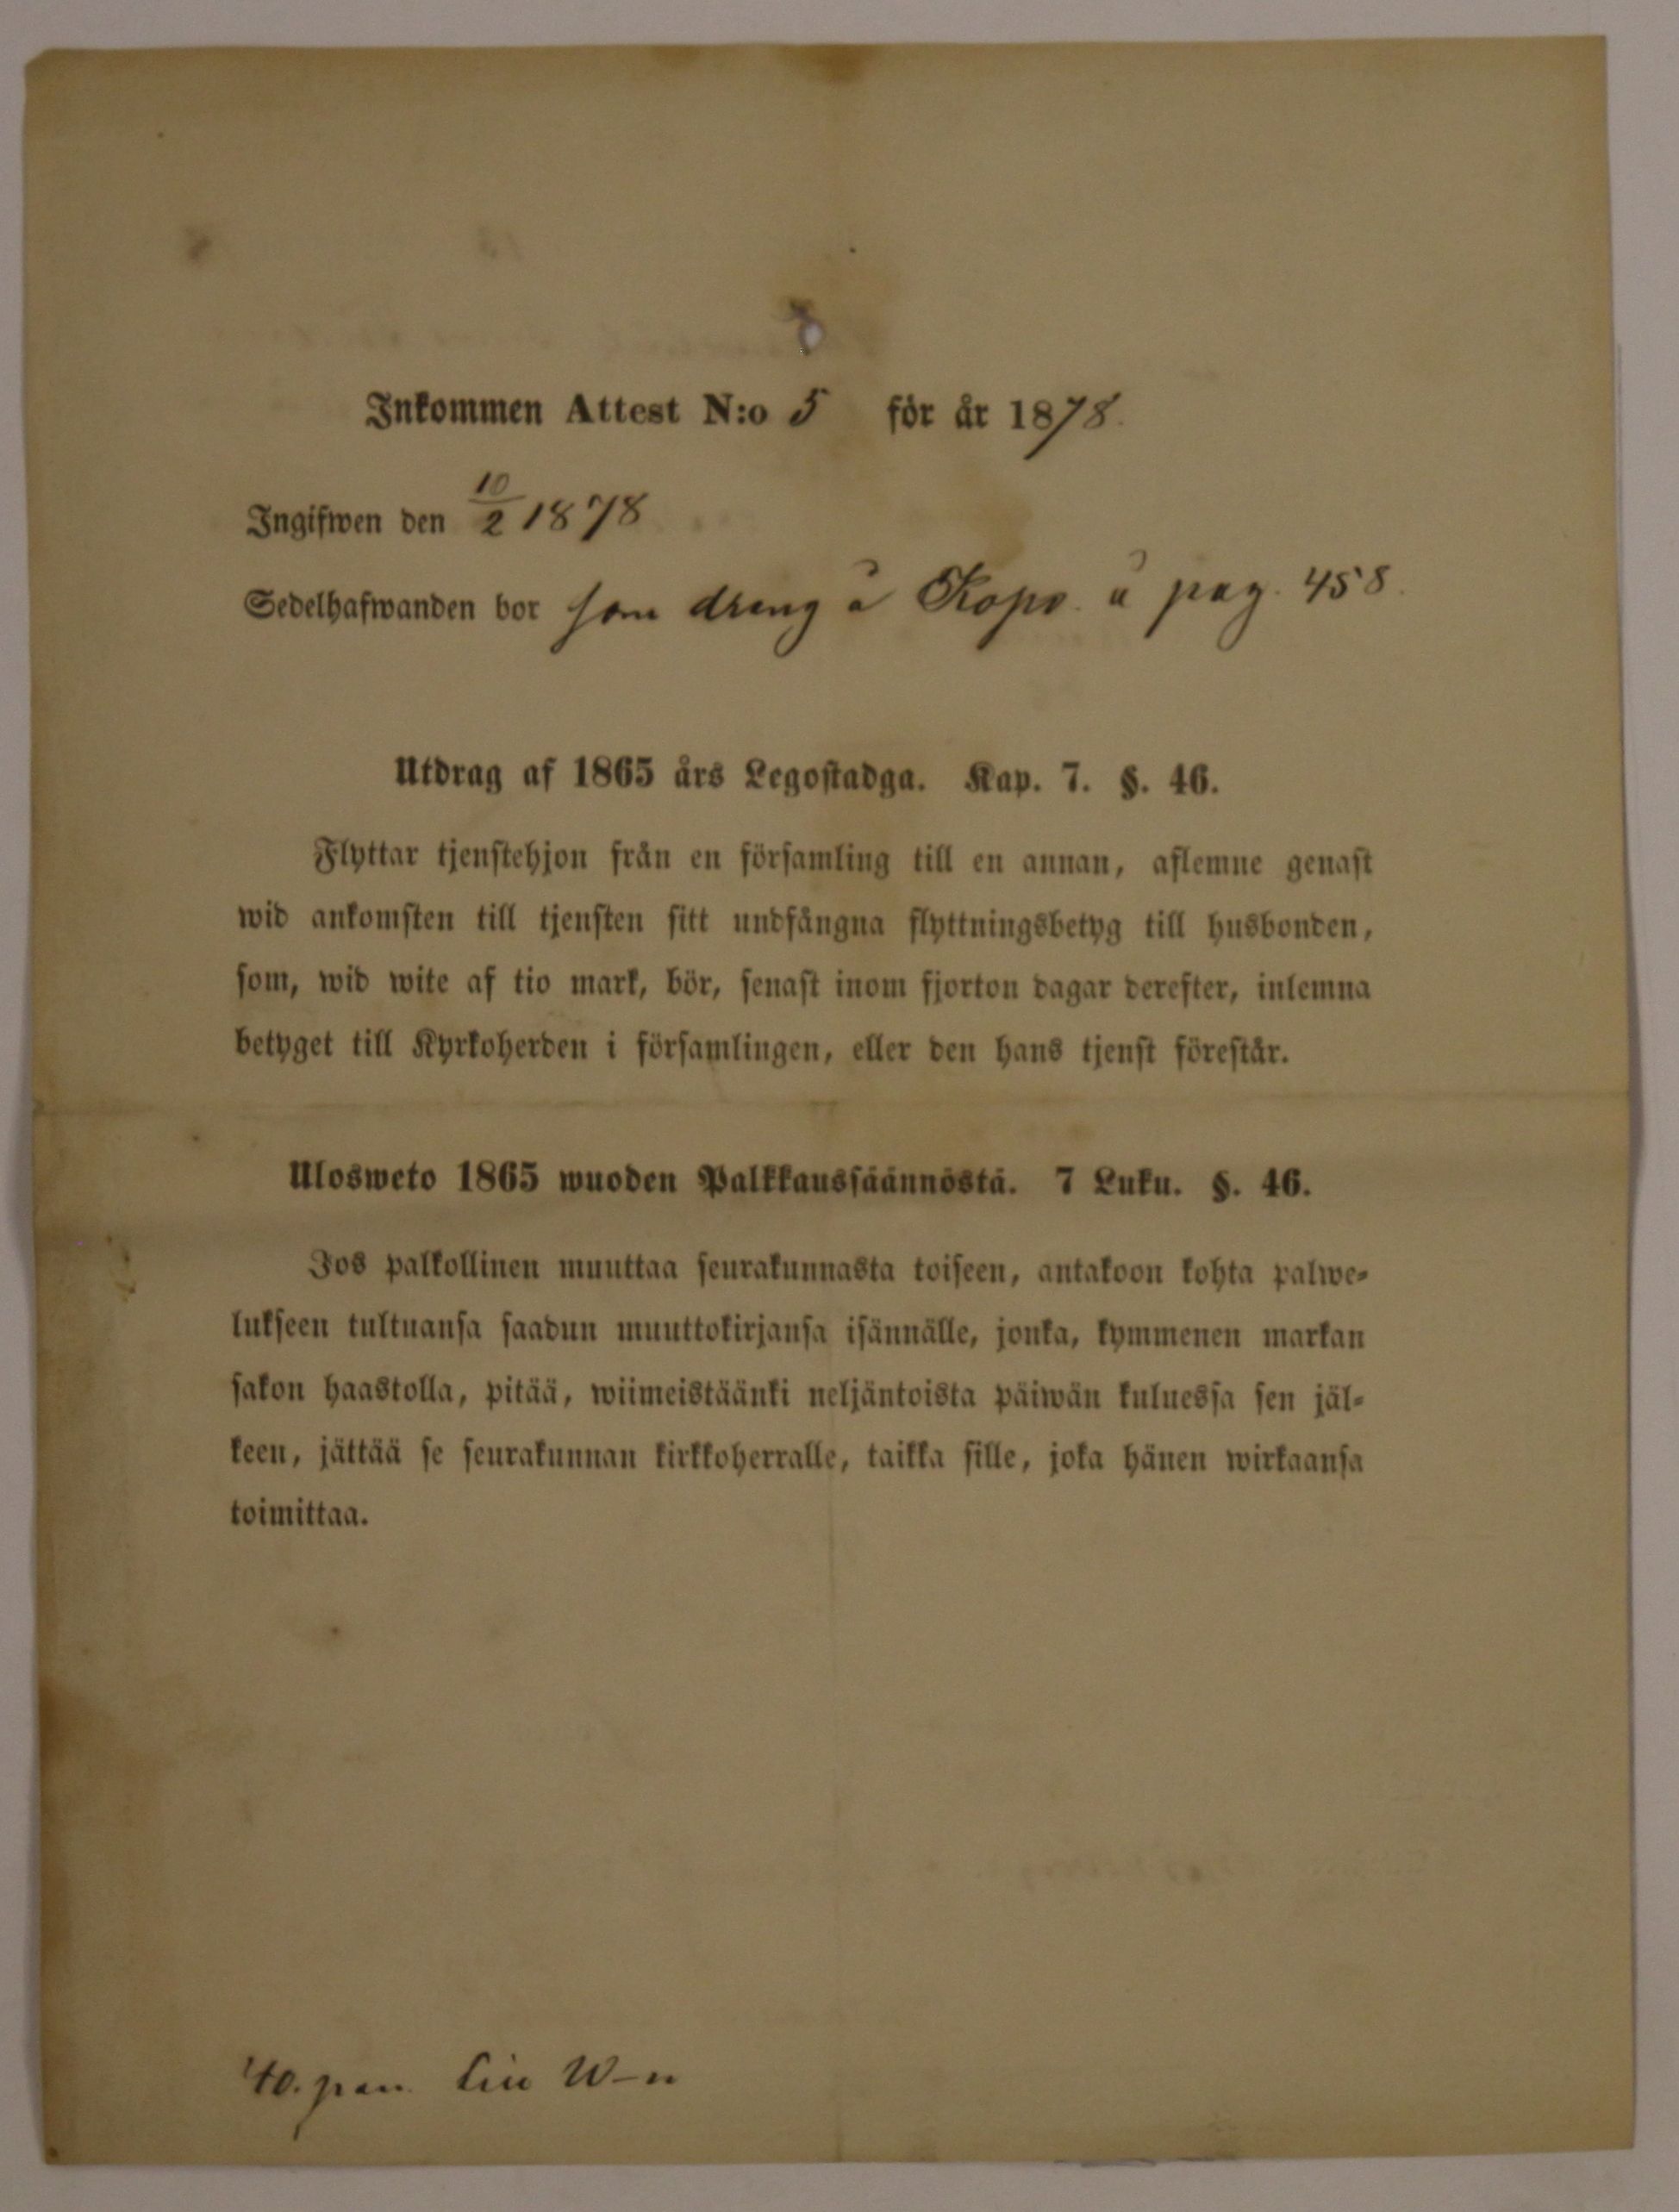 Inkommen Attest N:o 5 för år 1878.
Ingifwen den 10/2 1878
Sedelhafwanden bor som dreng å Kopo å pag. 458.
Utdrag af 1865 års Legostadga. Kap. 7. §. 46.
Flyttar tjenstehjon från en församling till en annan, aflemne genast
wid ankomsten till tjensten sitt undfångna flyttningsbetyg till husbonden,
som, wid wite af tio mark, bör, senast inom fjorton dagar derefter, inlemna
betyget till Kyrkoherden i församlingen, eller den hans tjenst förestår.
Ulosweto 1865 wuoden Palkkaussäännöstä. 7 Luku. §. 46.
Jos palkollinen muuttaa seurakunnasta toiseen, antakoon kohta palwe-
lukseen tultuansa saadun muuttokirjansa isännälle, jonka, kymmenen markan
sakon haastolla, pitää, wiimeistäänki neljäntoista päiwän kuluessa sen jäl-
keen, jättää se seurakunnan kirkkoherralle, taikka sille, joka hänen wirkaansa
toimittaa.
W–n